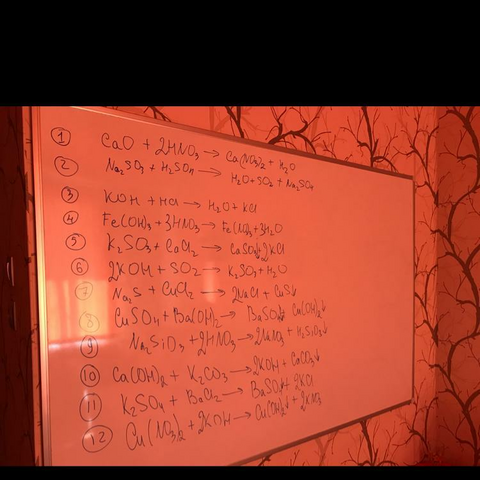 ① CaO + 2HNO₃ → Ca(NO₃)₂ + H₂O
② Na₂SO₃ + H₂SO₄ → H₂O + SO₂ + Na₂SO₄
③ KOH + HCl → H₂O + KCl
④ Fe(OH)₃ + 3HNO₃ → Fe(NO₃)₃ + 3H₂O
⑤ K₂SO₃ + CaCl₂ → CaSO₃↓ + 2KCl
⑥ 2KOH + SO₂ → K₂SO₃ + H₂O
⑦ Na₂S + CuCl₂ → 2NaCl + CuS↓
⑧ CuSO₄ + Ba(OH)₂ → BaSO₄↓ Cu(OH)₂↓
⑨ Na₂SiO₃ + 2HNO₃ → 2NaNO₃ + H₂SiO₃↓
⑩ Ca(OH)₂ + K₂CO₃ → 2KOH + CaCO₃↓
⑪ K₂SO₄ + BaCl₂ → BaSO₄↓ + 2KCl
⑫ Cu(NO₃)₂ + 2KOH → Cu(OH)₂↓ + 2KNO₃